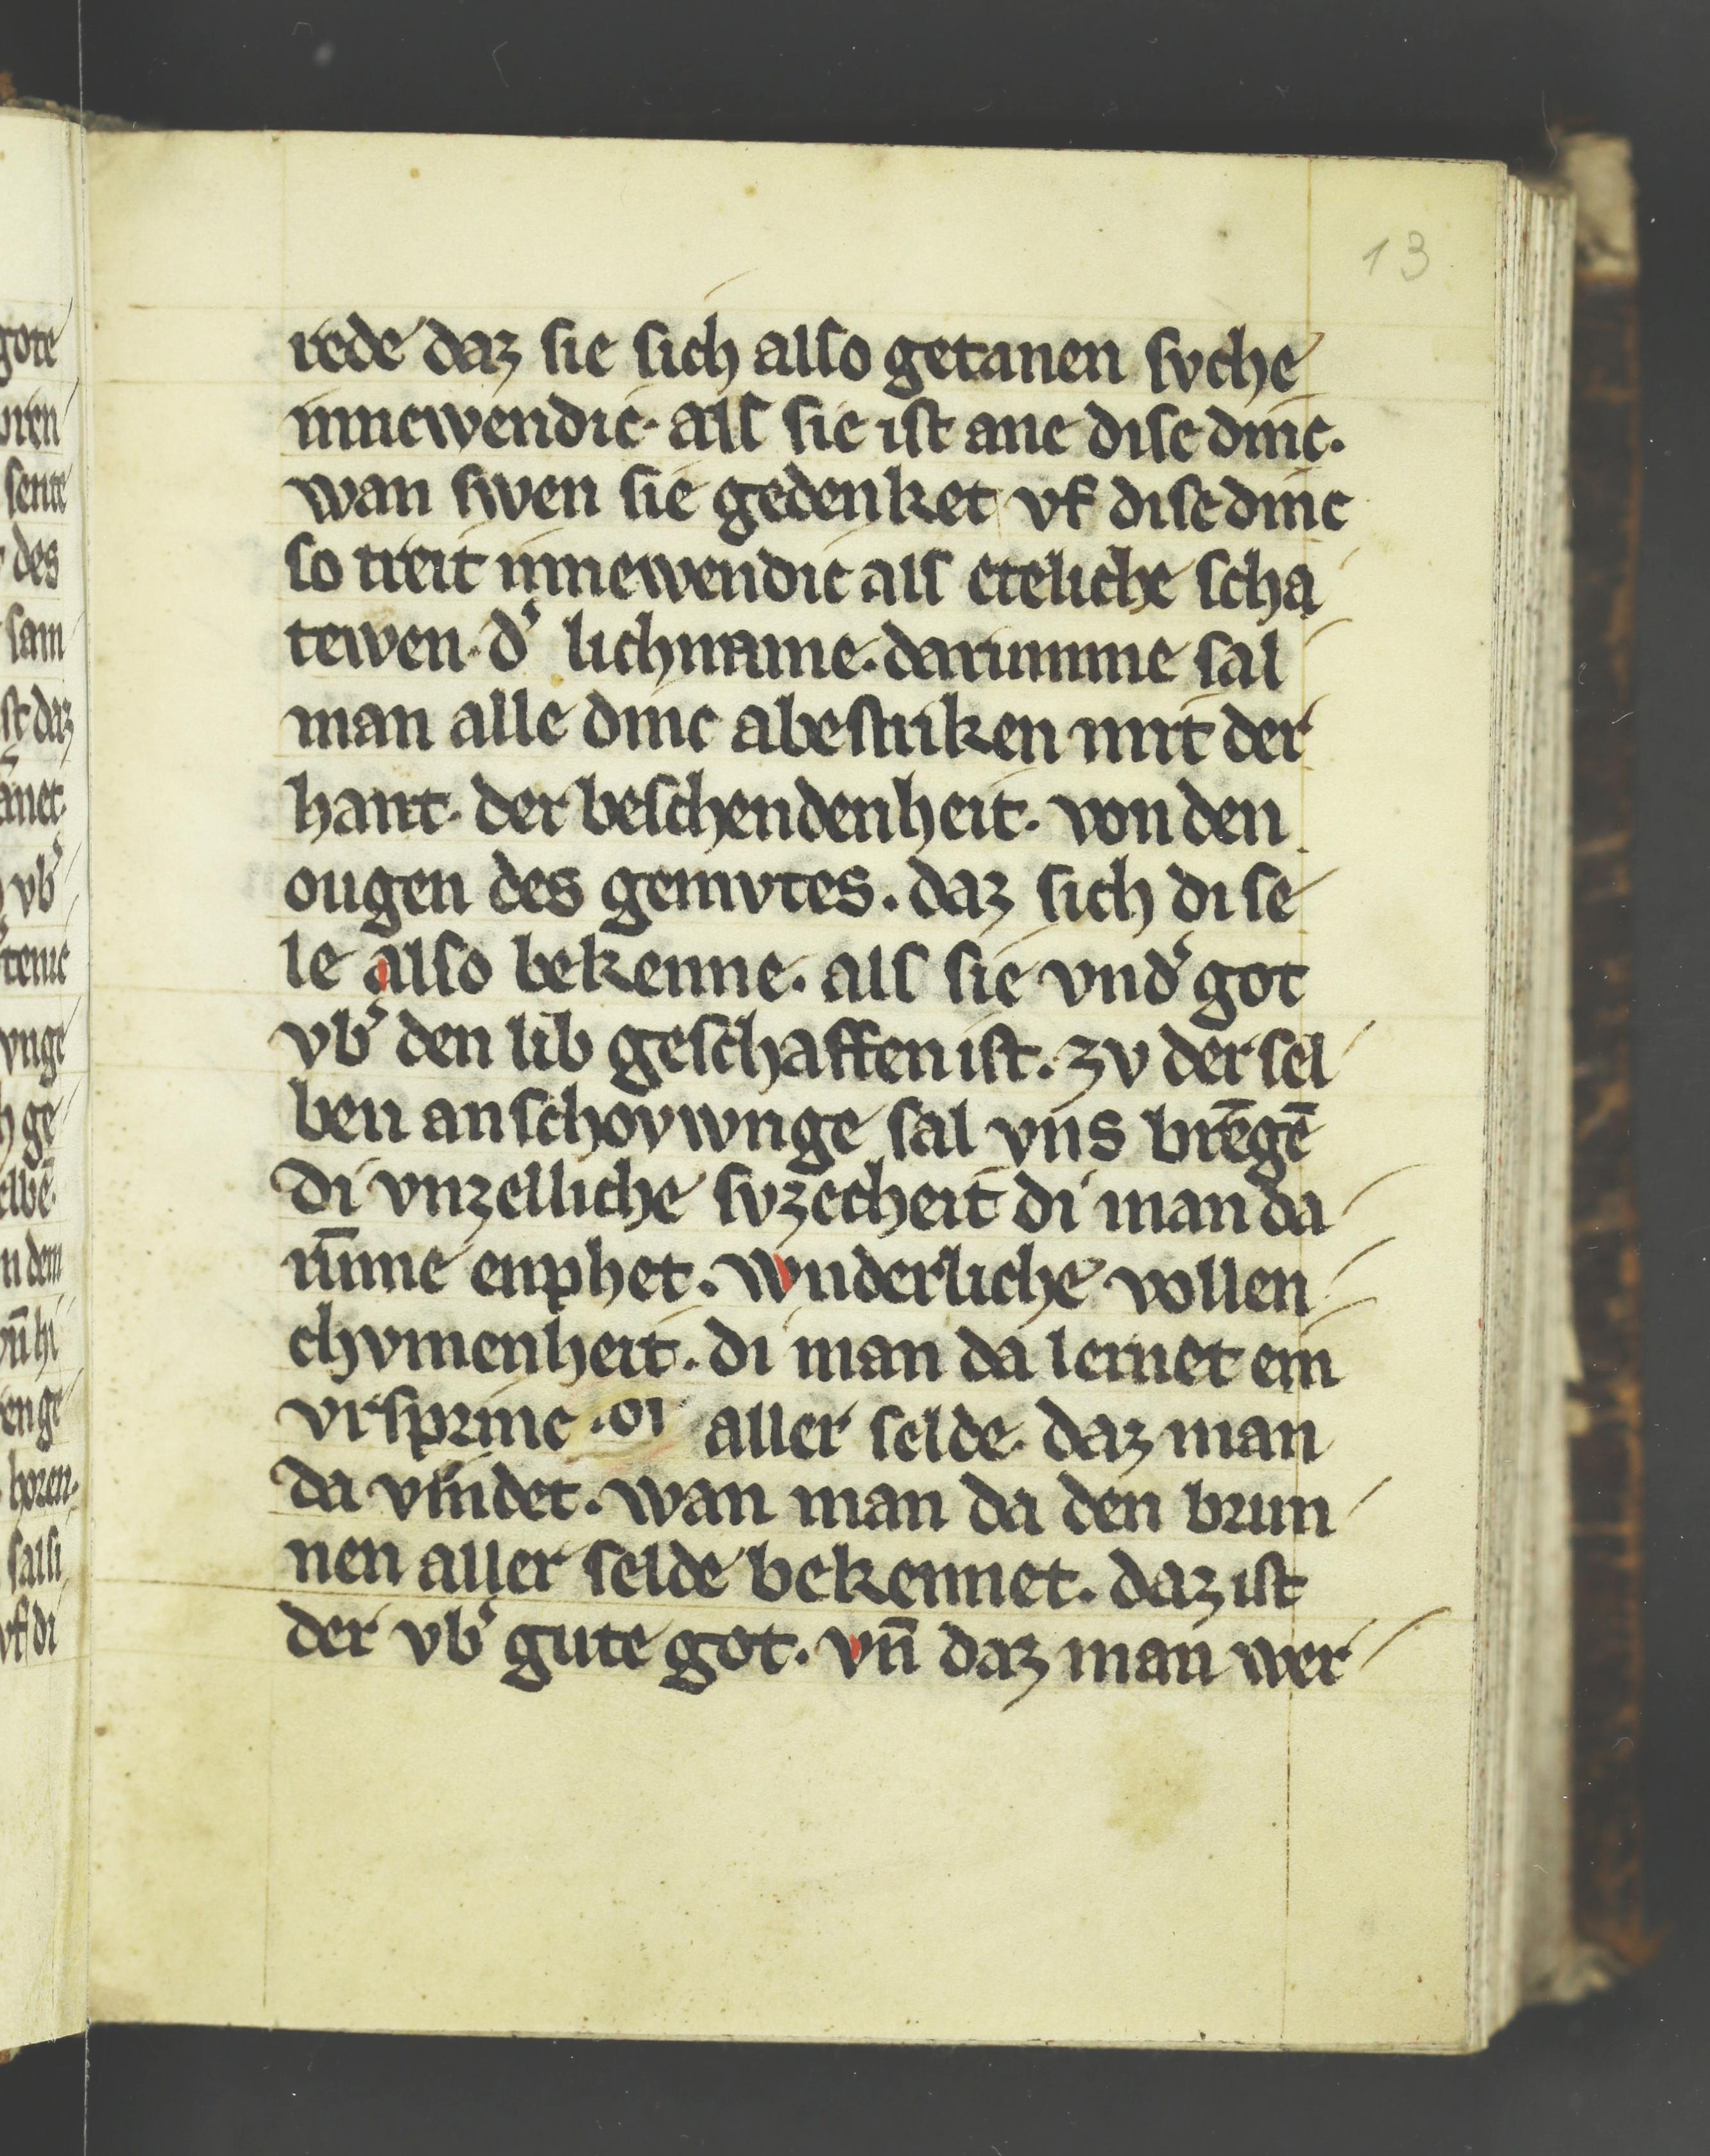 13
rede daz sie sich also getanen svche
innewendic· als sie ist ane dise dinc·
wan swen sie gedenket vf dise dinc
so treit innewendic als eteliche scha
tewen· d᾽ lichname· darumme sal
man alle dinc abestriken mit der
hant· der beschendenheit· von den
ougen des gemvtes· daz sich di se
le also bekenne· als sie vnd᾽ got
vb᾽ den lib geschaffen ist· zv der sel
ben anschovwnge sal vns brēgē
di vnzelliche svzecheit di man da
n̄mme enphet· wnderliche vollen
chvmenheit· di man da lernet ein
vrsprinc ·di aller selde· daz man
da vindet· wan man da den brun
nen aller selde bekennet· daz ist
der vb᾽ gute got· vn̄ daz man wer